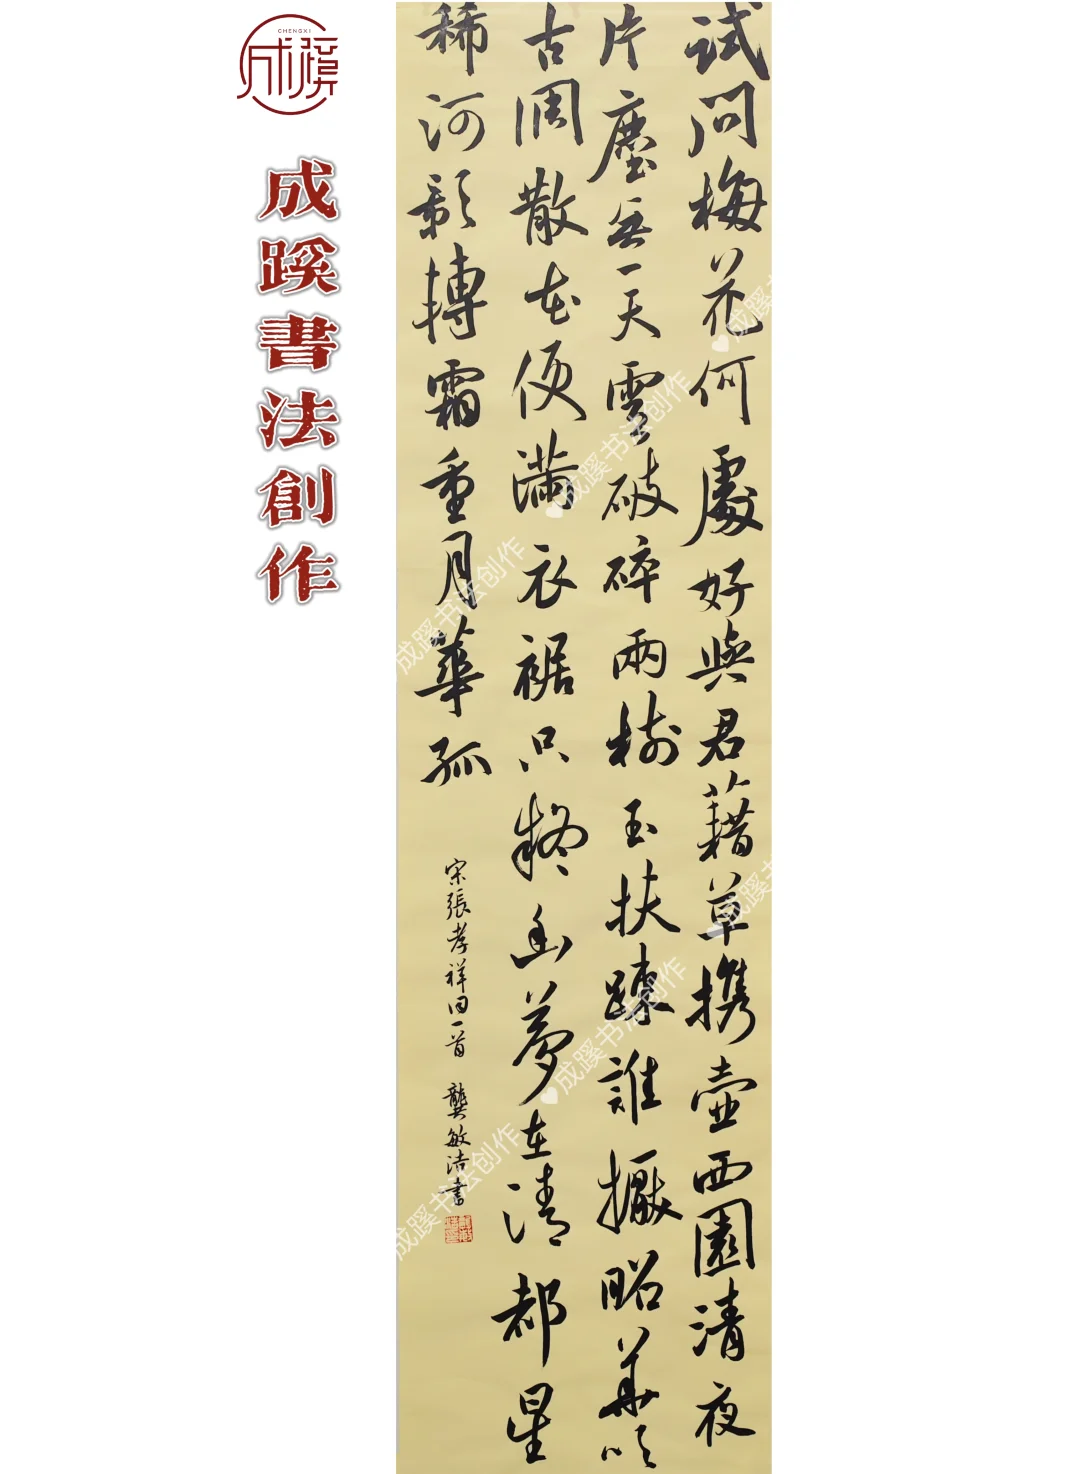 CHENGXI
成蹊
成蹊書法創作
試問梅花何處好與君藉草携壺西園清夜
片塵無一天雲破碎兩樹玉扶踈誰擫昭華吹
古調散花便滿衣裾只疑幽夢在清都星
稀河影轉霜重月華孤
宋張孝祥詞一首 龔敏洁書
成蹊书法创作
成蹊书法创作
成蹊书法创作
成蹊书法创作
成蹊书
成蹊书